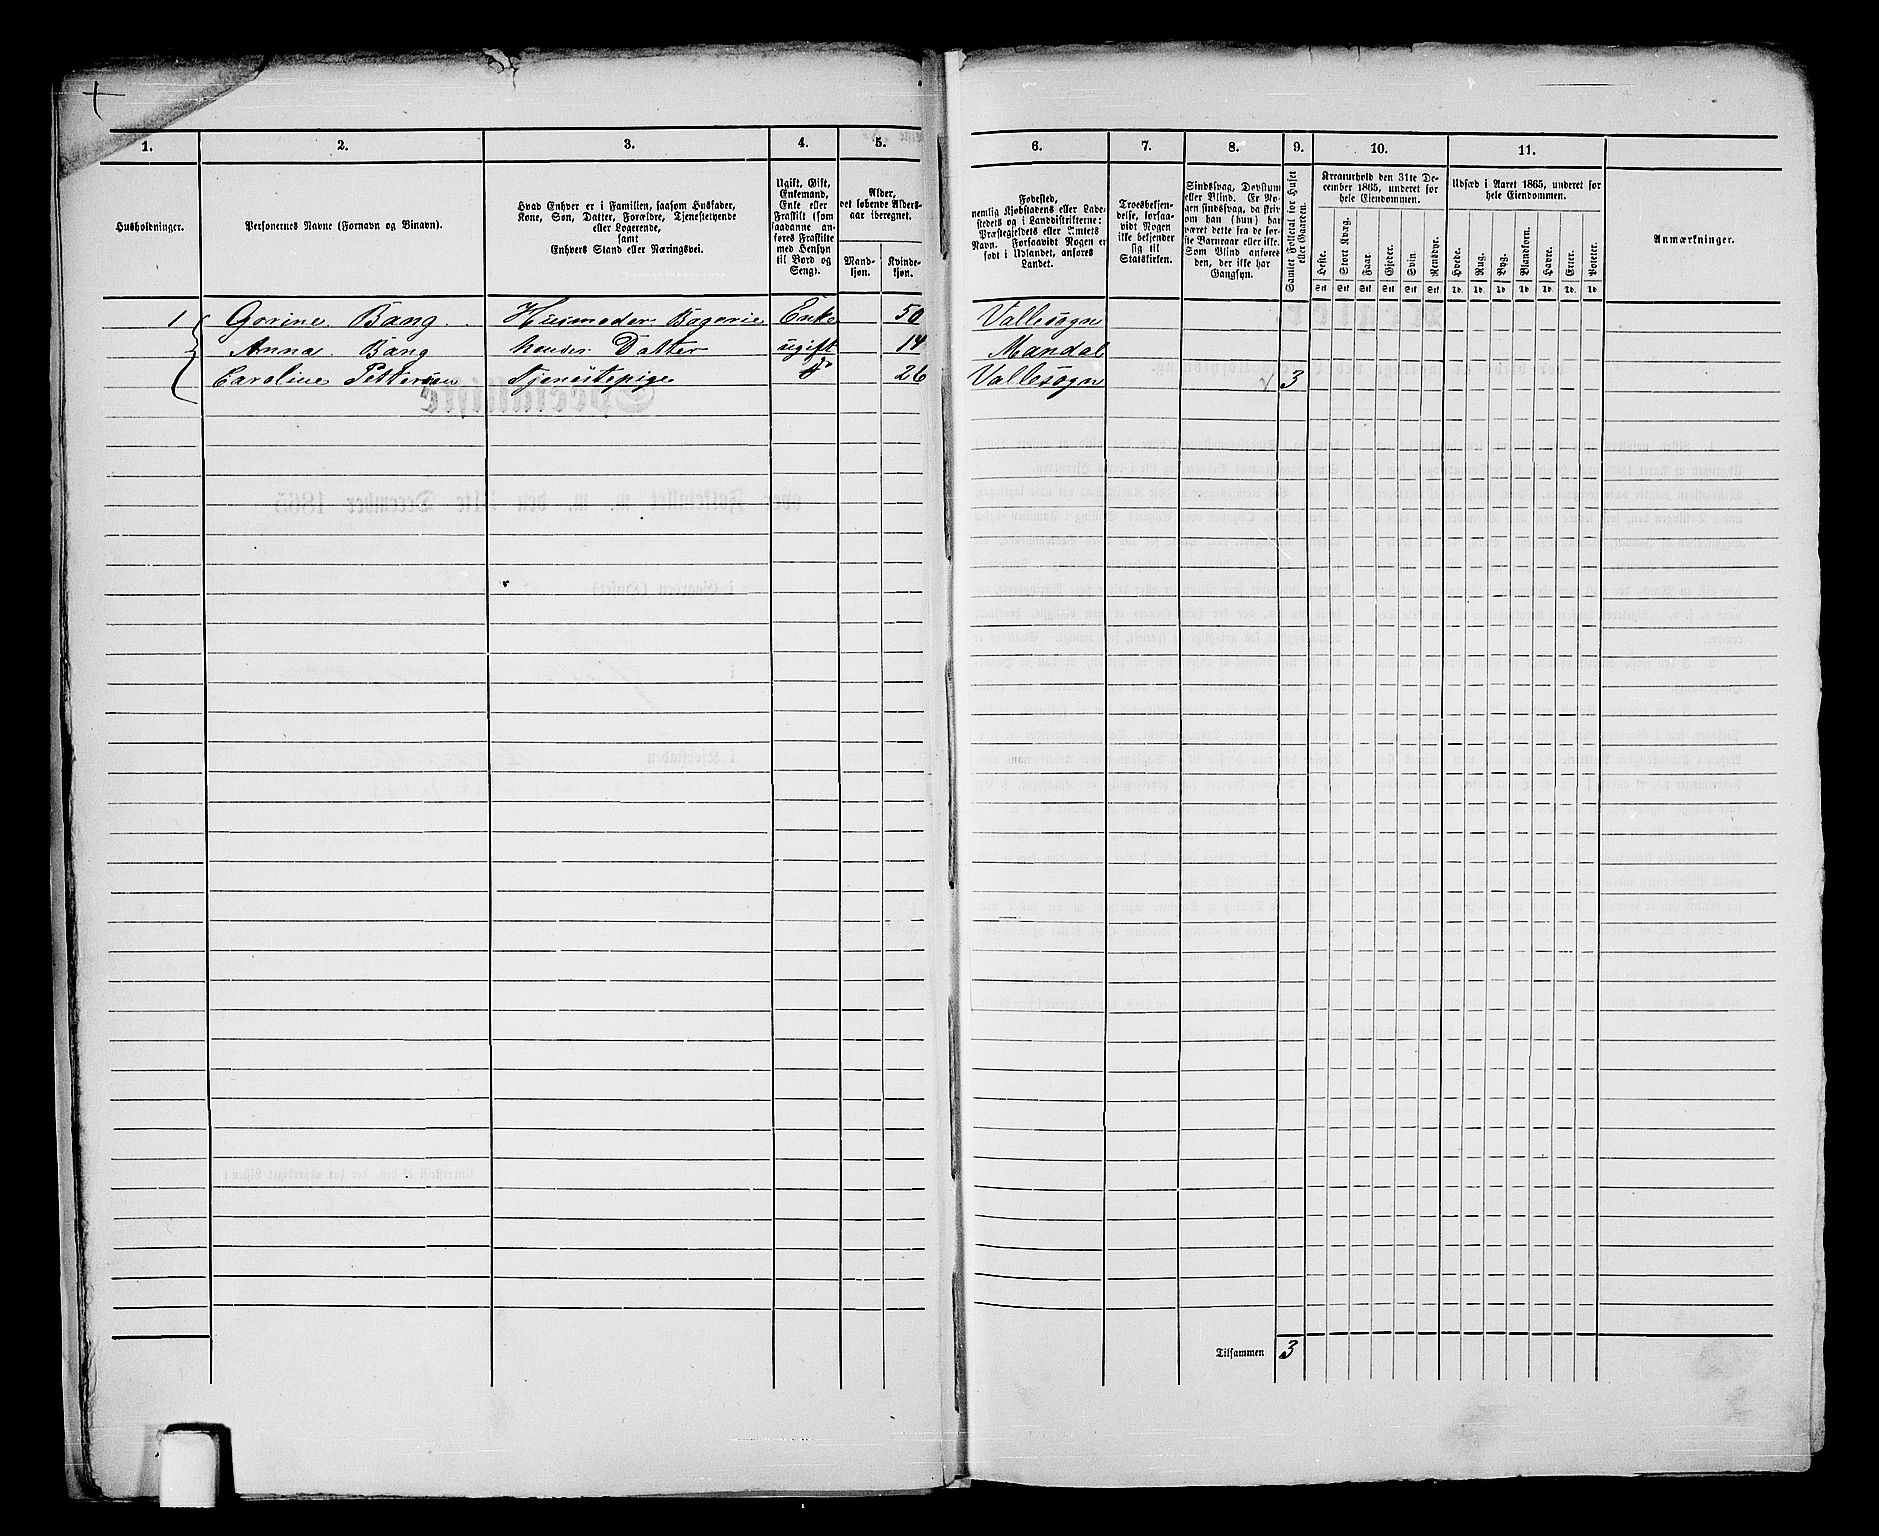 1. 2. 3. 4. 5. 6. 7. 8. 9. 10. 11.
Husholdninger.
Personernes Navne (Fornavn og Binavn).
Hvad Enhver er i Familien, saasom Husfader,
Kone, Søn, Datter, Forældre, Tjenestetyende
eller Logerende,
samt
Enhvers Stand eller Næringsvei.
Ugift, Gift,
Enkemand,
Enke eller
Fraskilt (som
saadanne an-
føres Fraskilte
med Hensyn
til Bord og
Seng).
Alder,
det løbende Alders-
aar iberegnet.
Mand-
kjøn.
Kvinde-
kjøn.
Fødested,
nemlig Kjøbstadens eller Lade-
stedets og i Landdistrikterne:
Præstegjeldets eller Amtets
Navn. Forsaavidt Nogen er
født i Udlandet, anføres
Landet.
Troesbekjen-
delse, forsaa-
vidt Nogen
ikke bekjender
sig til
Statskirken.
Sindssvag, Døvstum
eller Blind. Er No-
gen sindssvag, da skriv
om han (hun) har
været dette fra de før-
ste Barneaar eller ikke.
Som Blind anføres
den, der ikke har
Gangsyn.
Samlet Folketal for Huset
eller Gaarden.
Kreaturhold den 31te De-
cember 1865, underet for
hele Eiendommen.
Heste. Stort Kvæg. Faar. Gjeder. Svin. Rensdyr.
Stk Stk Stk Stk Stk Stk
Udsæd i Aaret 1865, underet for
hele Eiendommen.
Hvede. Rug. Byg. Blandkorn. Havre. Erter. Poteter.
Td. Td. Td. Td. Td. Td. Td.
Anmærkninger.
1 Gorine Bang Husmoder Bageri Enke 50 Vallesogn
Anna Bang hendes Datter ugift 14 Mandal
Caroline Pettersen Tjenestepige do 26 Vallesogn 3
Tilsammen 3